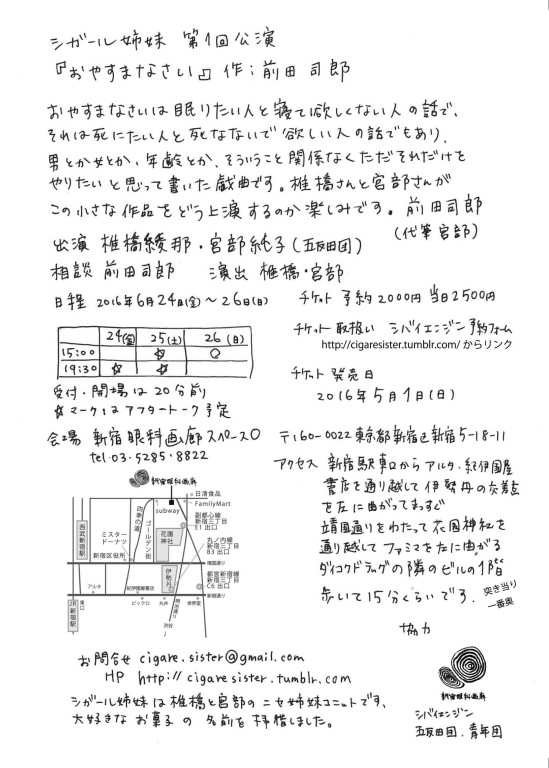 シガール姉妹 第1回公演
『おやすまなさい』作：前田司郎
おやすまなさいは眠りたい人と寝て欲しくない人の話で、
それは死にたい人と死なないで欲しい人の話でもあり、
男とか女とか、年齢とか、そういうこと関係なくただそれだけを
やりたいと思って書いた戯曲です。椎橋さんと宮部さんが
この小さな作品をどう上演するのか楽しみです。前田司郎
（代筆宮部）
出演 椎橋綾那・宮部純子（五反田団）
相談 前田司郎 演出 椎橋・宮部
日程 2016年6月24日(金)～26日(日)
24(金) 25(土) 26(日)
15:00 ☆ ○
19:30 ☆ ☆
受付・開場は20分前
☆マークはアフタートーク予定
チケット 予約2000円 当日2500円
チケット取扱い シバイエンジン予約フォーム
http://cigaresister.tumblr.com/ からリンク
チケット発売日
2016年5月1日(日)
会場 新宿眼科画廊スペースO
tel.03-5285-8822
〒160-0022 東京都新宿区新宿5-18-11
アクセス 新宿駅東口からアルタ、紀伊國屋
書店を通り越して伊勢丹の交差点
を左に曲がってまっすぐ
靖国通りをわたって花園神社を
通り越してファミマを左に曲がる
ダイコクドラッグの隣のビルの1階
歩いて15分くらいです。
突き当り
一番奥
新宿眼科画廊
日清食品
FamilyMart
subway
副都心線
新宿三丁目
E1 出口
丸ノ内線
新宿三丁目
B3 出口
都営新宿線
新宿三丁目
C6 出口
四季の道
ゴールデン街
花園
神社
西武新宿駅
ミスター
ドーナツ
新宿区役所
靖国通り
伊勢丹
アルタ
紀伊國屋書店
新宿通り
JR新宿駅
東口
ビックロ
丸井
世界堂
明治通り
渋谷
協力
お問合せ cigare.sister@gmail.com
HP http://cigaresister.tumblr.com
シガール姉妹は椎橋と宮部のニセ姉妹ユニットです、
大好きなお菓子の名前を拝借しました。
新宿眼科画廊
シバイエンジン
五反田団、青年団